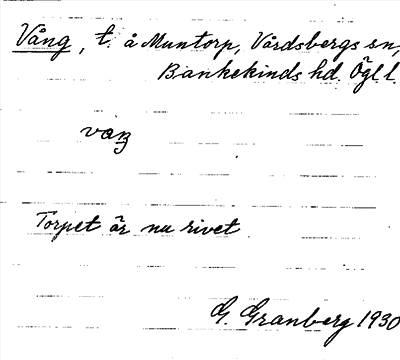 Vång, t. å Muntorp, Vårdsbergs sn,
Bankekinds hd. Ögl. l.
vaŋ
Torpet är nu rivet
G. Granberg 1930